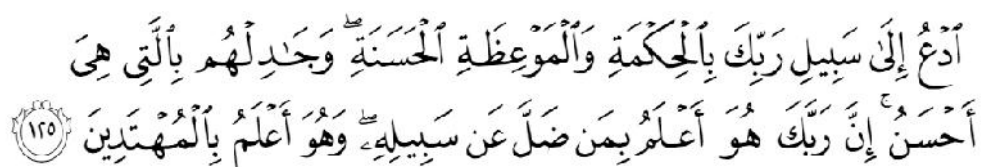 ٱدۡعُ إِلَىٰ سَبِيلِ رَبِّكَ بِٱلۡحِكۡمَةِ وَٱلۡمَوۡعِظَةِ ٱلۡحَسَنَةِۖ وَجَٰدِلۡهُم بِٱلَّتِي هِيَ
أَحۡسَنُۚ إِنَّ رَبَّكَ هُوَ أَعۡلَمُ بِمَن ضَلَّ عَن سَبِيلِهِۦۖ وَهُوَ أَعۡلَمُ بِٱلۡمُهۡتَدِينَ ١٢٥